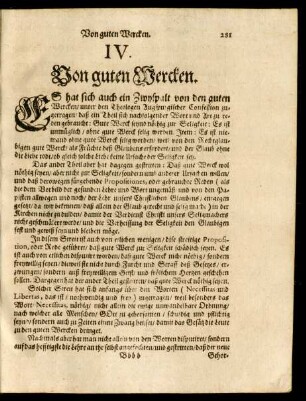 Von guten Wercken. 281
IV.
Von guten Wercken.
ES hat sich auch ein Zwyspalt von den guten
Wercken / unter den Theologen Augspurgischer Confession zu-
getragen / daß ein Theil sich nachfolgender Wort und Art zu re-
den gebraucht: Gute Werck seynd nöthig zur Seligkeit: Es ist
unmüglich / ohne gute Werck selig werden. Item: Es ist nie-
mand ohne gute Werck selig worden / weil von den Rechtglau-
bigen gute Werck als Früchte deß Glaubens erfordert / und der Glaub ohne
die Liebe todt / ob gleich solche Liebe keine Ursache der Seligkeit sey.
Das ander Theil aber hat dagegen gestritten / Daß gute Werck wol
nöthig seyen / aber nicht zur Seligkeit / sondern umb anderer Ursachen willen /
und daß derowegen fürgehende Propositiones, oder gebrauchte Reden (als
die dem Vorbild der gesunden Lehre und Wort ungemäß / und von den Pa-
pisten allwegen und noch / der Lehr unsers Christlichen Glaubens / entgegen
gesetzt / da wir bekennen / daß allein der Glaub gerecht und selig macht) in der
Kirchen nicht zu dulden / damit der Verdienst Christi unsers Seligmachers
nicht geschmälert werde / und die Verheissung der Seligkeit den Glaubigen
fest und gewiß seyn und bleiben möge.
In diesem Streit ist auch von etlichen wenigen / diese streitige Proposi-
tion, oder Rede gefallen / daß gute Werck zur Seligkeit schädlich seyen. Es ist
auch von etlichen disputirt worden / daß gute Werck nicht nöthig / sondern
freywillig seyen / dieweil sie nicht durch Furcht und Straff deß Gesetzes / er-
zwungen / sondern auß freywilligem Geist und frölichem Hertzen geschehen
sollen. Dargegen hat der ander Theil gestritten / daß gute Werck nöthig seyen.
Dieser Streit hat sich anfangs über den Worten (Necessitas und
Libertas, das ist / nothwendig und frey) zugetragen / weil besonders das
Wort Necessitas, nöthig / nicht allein die ewige unwandelbare Ordnung /
nach welcher alle Menschen / GOtt zu gehorsamen / schuldig und pflichtig
seyn / sondern auch zu Zeiten einen Zwang heisset / damit das Gesätz die Leut zu
den guten Wercken dringet.
Nachmals aber hat man nicht allein von den Worten disputiret / sondern
auff das hefftigste die Lehre an ihr selbst angefochten / und gestritten / daß der neue
Bbbb Gehor-